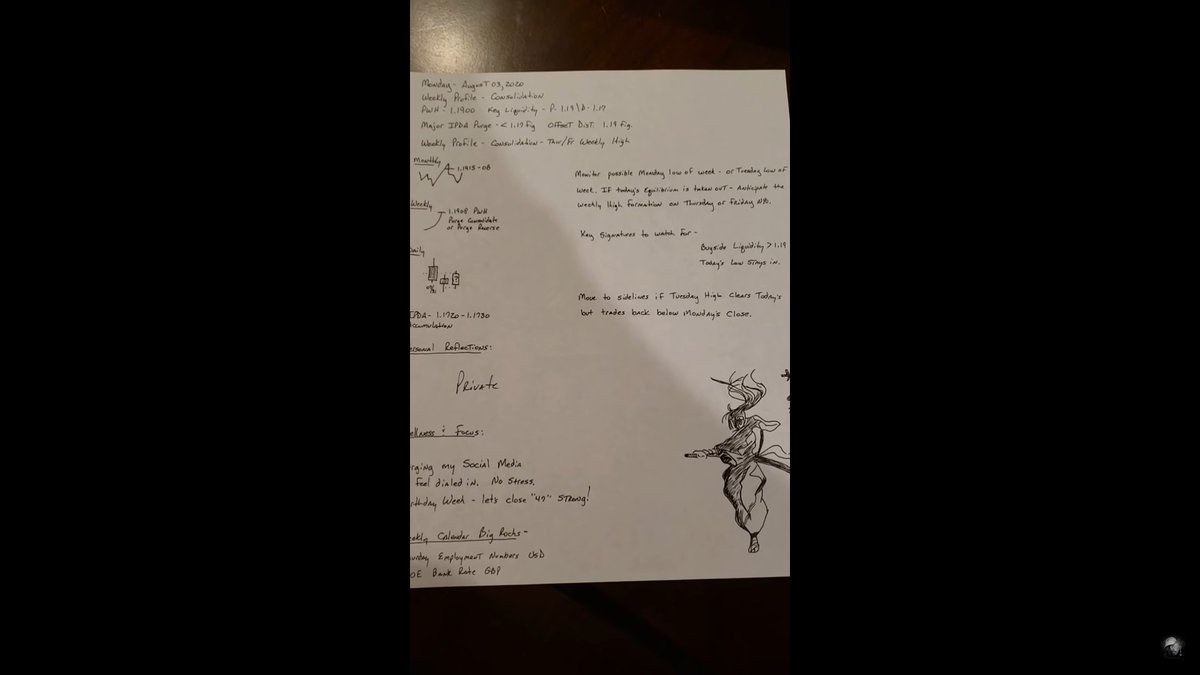 Monday - August 03, 2020
Weekly Profile - Consolidation
PWH - 1.1900 Key Liquidity - P. 1.19 \ D - 1.17
Major IPDA Purge - < 1.17 fig OFFSET DIST. 1.19 fig.
Weekly Profile - Consolidation - Thur/Fr Weekly High
Monthly
1.1915 - OB
Weekly
1.1908 PWH
Purge Consolidate
or Purge Reverse
Daily
IPDA - 1.1720 - 1.1730
Accumulation
Personal Reflections:
Private
ellness & Focus:
rging my Social Media
feel dialed in. No Stress.
rthday Week - let's close "47" Strong!
eekly Calendar Big Rocks -
Employment Numbers USD
OE Bank Rate GBP
Monitor possible Monday low of week - or Tuesday Low of
week. If today's Equilibrium is taken out - Anticipate the
weekly High formation on Thursday or Friday
Key Signatures to watch for -
Buyside Liquidity > 1.19
Today's Low Stays in.
Move to sidelines if Tuesday High Clears Today's
but trades back below Monday's Close.